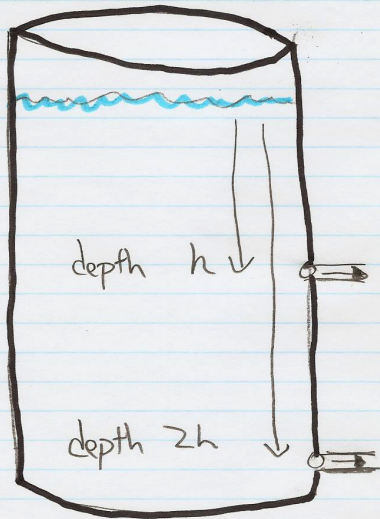 depth h
depth 2h